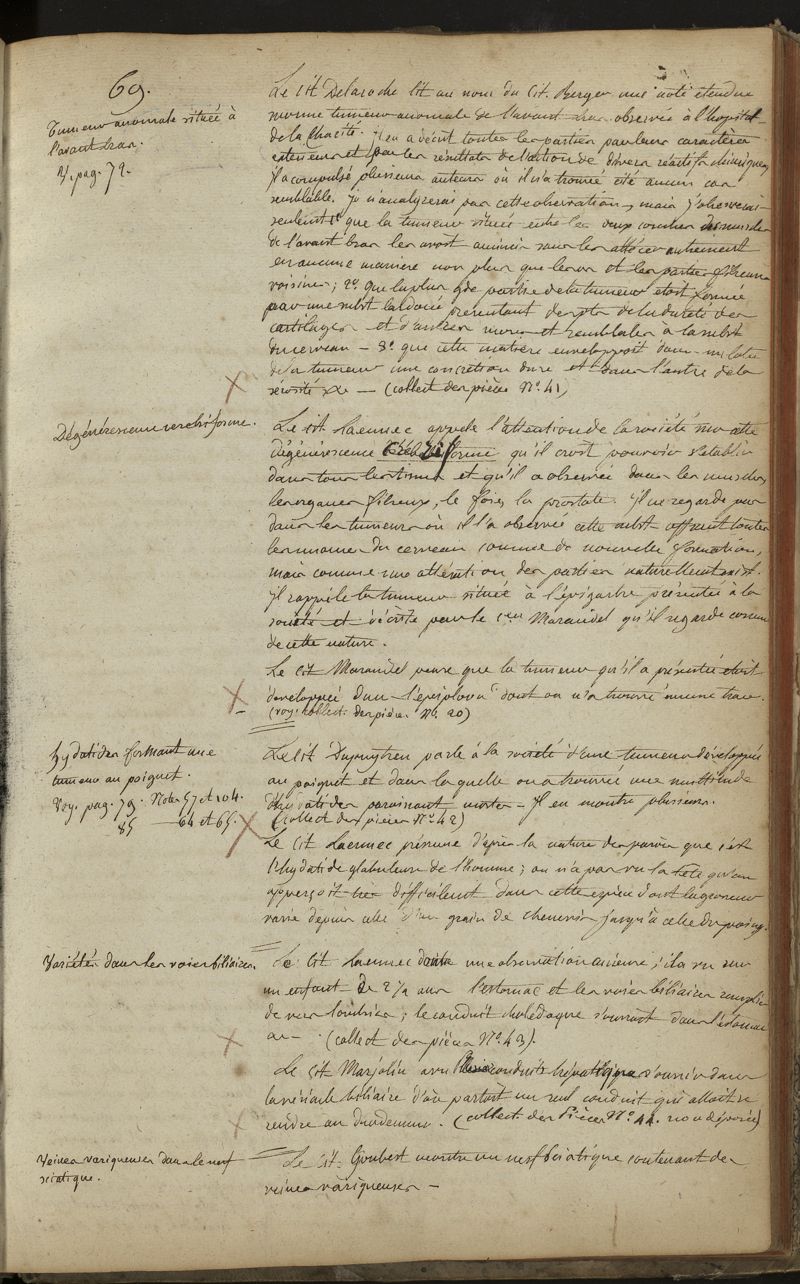 69.
Tumeur anomale située à
l'avant bras.
V. pag. 72.
Le Cit Delaroche lit au nom du Cit. Berger une note étendue
sur une tumeur anomale de l'avant bras observée à l'hopital
de la Charité. Il en a décrit toutes les parties par leurs caractères
exterieurs et par les résultats de l'action de divers réactifs chimiques,
Il a compulsé plusieurs auteurs où il n'a trouvé cité aucun cas
semblable. Je n'analyserai pas cette observation, mais j'observerai
seulemt 1° que la tumeur située entre les deux couches des muscles
de l'avant bras les avoit amincis sans les altérer autrement
en aucune maniere non plus que les os et les parties fibreuses
voisines; 2° que la plus gde partie de la tumeur étoit formée
par une subst lardacée présentant des pts de la dureté des
cartilages et d'autres mous et semblables à la subst
du cerveau — 3° que cette matière enveloppoit dans un côté
de la tumeur une concrétion dure et dans l'autre de la
sérosité — (collect des pièces N° 41)
Dégénérescence cerebriforme.
Le cit Laennec appele l'attention de la société sur cette
dégénérescence cérébriforme qu'il croit pouvoir s'établir
dans tous les tissus et qu'il a observée dans les muscles,
les organes fibreux, le foie, la prostate. Il ne regarde pas
dans les tumeurs où il l'a observée cette subst offrant toutes
les nuances du cerveau comme de nouvelle formation,
mais comme une altération des parties naturellement exist.
Il rappèle la tumeur située à l'épigastre présentée à la
société et décrite par le cen Marandel qu'il regarde comme
de cette nature.
Le Cit Marandel pense que la tumeur qu'il a présentée étoit
developpée dans l'epiploon dont on n'a trouvé aucune trace.
(voy. Collect. des pièces N°. 20)
hydatides formant une
tumeur au poignet.
Voy. pag. 79. Notes 57 et 104.
85 — 64 et 65.
Le Cit Dupuytren parle à la société d'une tumeur développée
au poignet et dans laquelle on a trouvé une multitude
d'hydatides paroissant mortes — Il en montre plusieurs.
(collect des pièces N° 42)
Le Cit Laennec présume d'après la nature des parois que c'est
l'hydatide globuleux de l'homme; on n'a pas vu la tête qu'on
apperçoit très difficilemt dans cette espèce dont la grosseur
varie depuis celle d'un grain de chenevis jusqu'à celle du poing.
Variétés dans les voies biliaires.
Le Cit Laennec donne une observation ancienne; il a vu sur
un enfant de 2 ½ ans l'estomac et les voies biliaires remplis
de vers lombrics; le conduit cholédoque s'ouvroit dans l'estomac
— (collect des pièces N° 43).
Le Cit Marjolin a vu conduits hépatiques s'ouvrir dans
la vésicule biliaire d'où partoit un seul conduit qui alloit se
rendre au duodenum. (collect des Pièces N° 44. non déposée)
Veines variqueuses dans le nerf
sciatique.
Le Cit. Goubert montre un nerf sciatique contenant des
veines variqueuses —